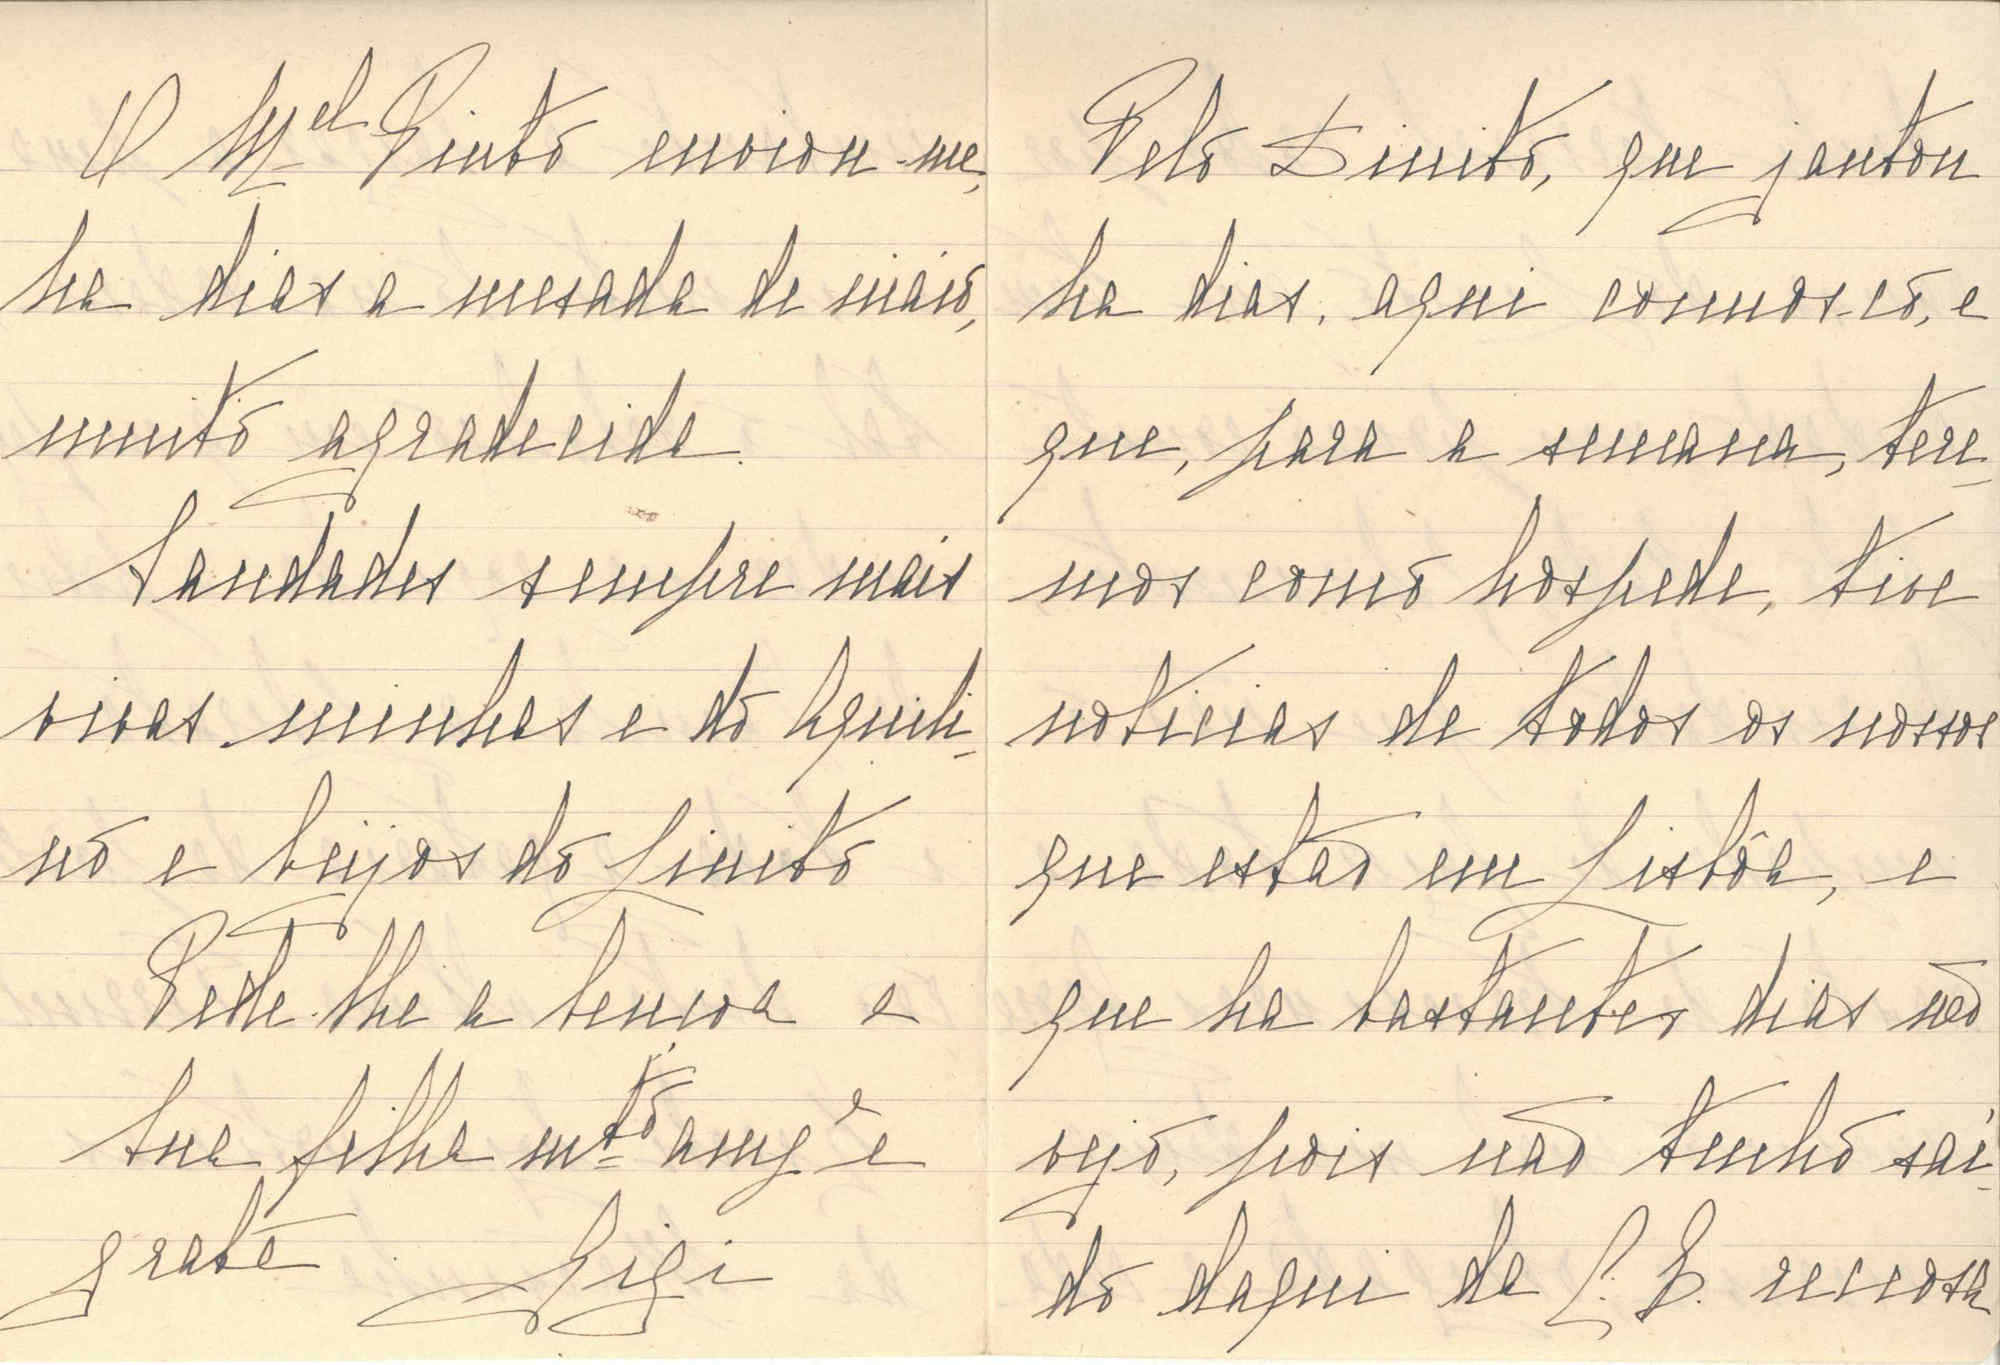 O Mel Pinto enviou-me,
ha dias a mesada de maio,
muito agradecida.
Saudades sempre mais
vivas minhas e do Aquili-
no e beijos do Linito
Pede-lhe a bencoa e
sua filha mto amga e
grata Gigi
Pelo Dinito, que jantou
ha dias, aqui connos-co, e
que, para a semana, tere-
mos como hospede, tive
noticias de todos os nossos
que estão em Lisbôa, e
que ha bastantes dias não
vejo, pois não tenho sai-
do daqui da C. Q. receosa